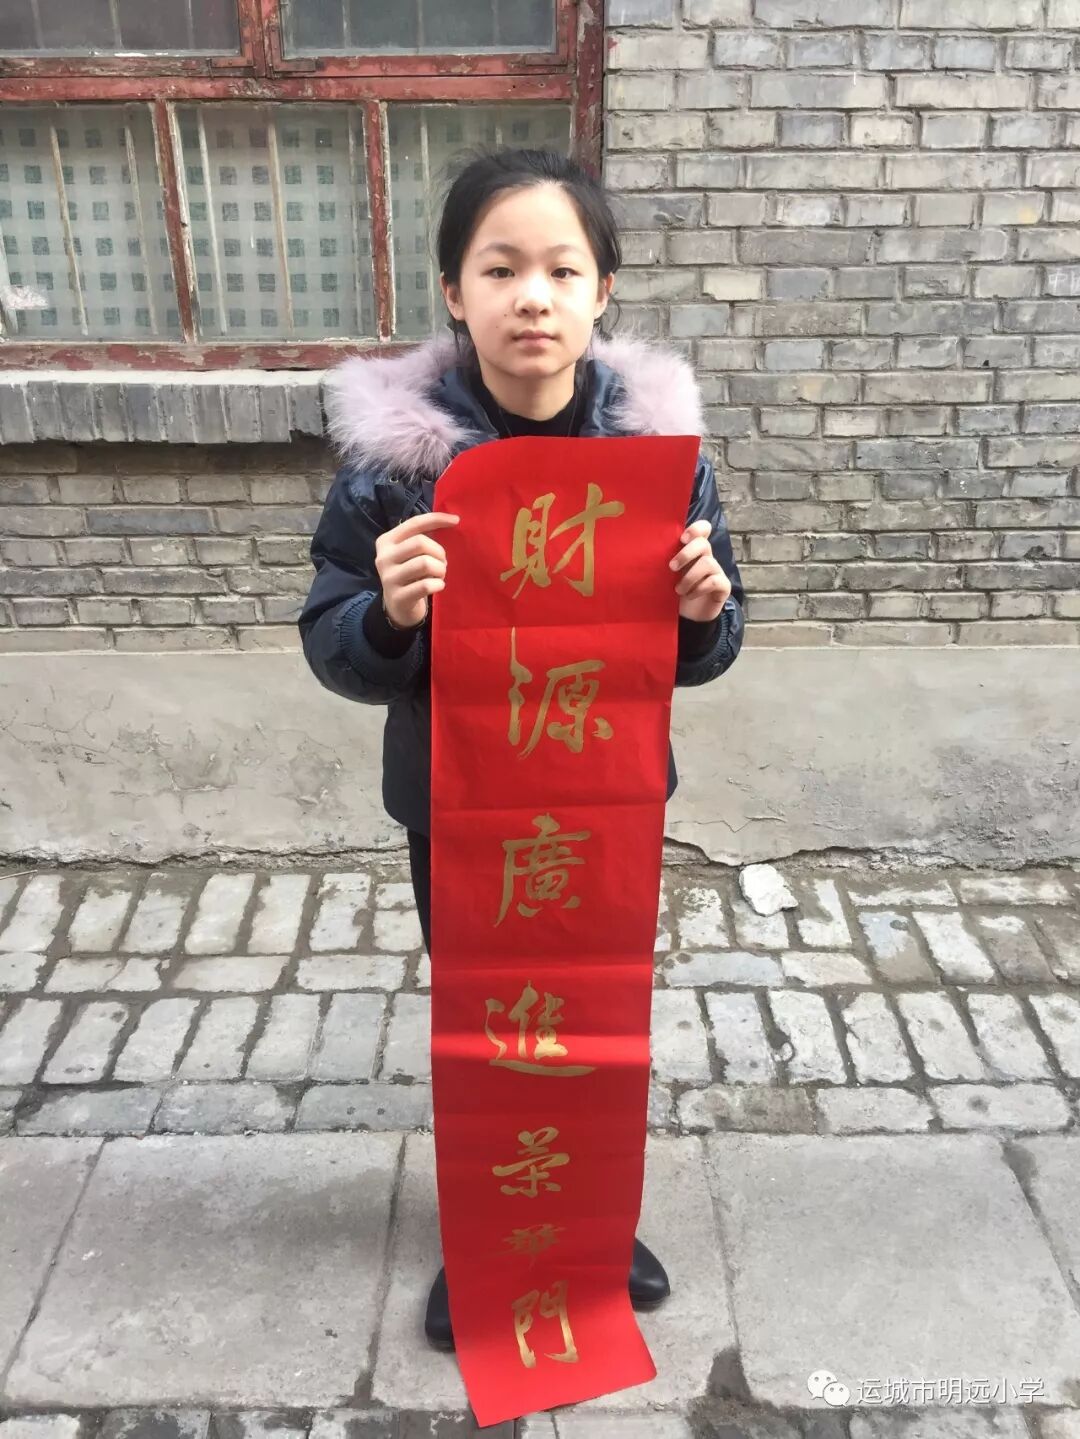 財源廣進榮華門
运城市明远小学